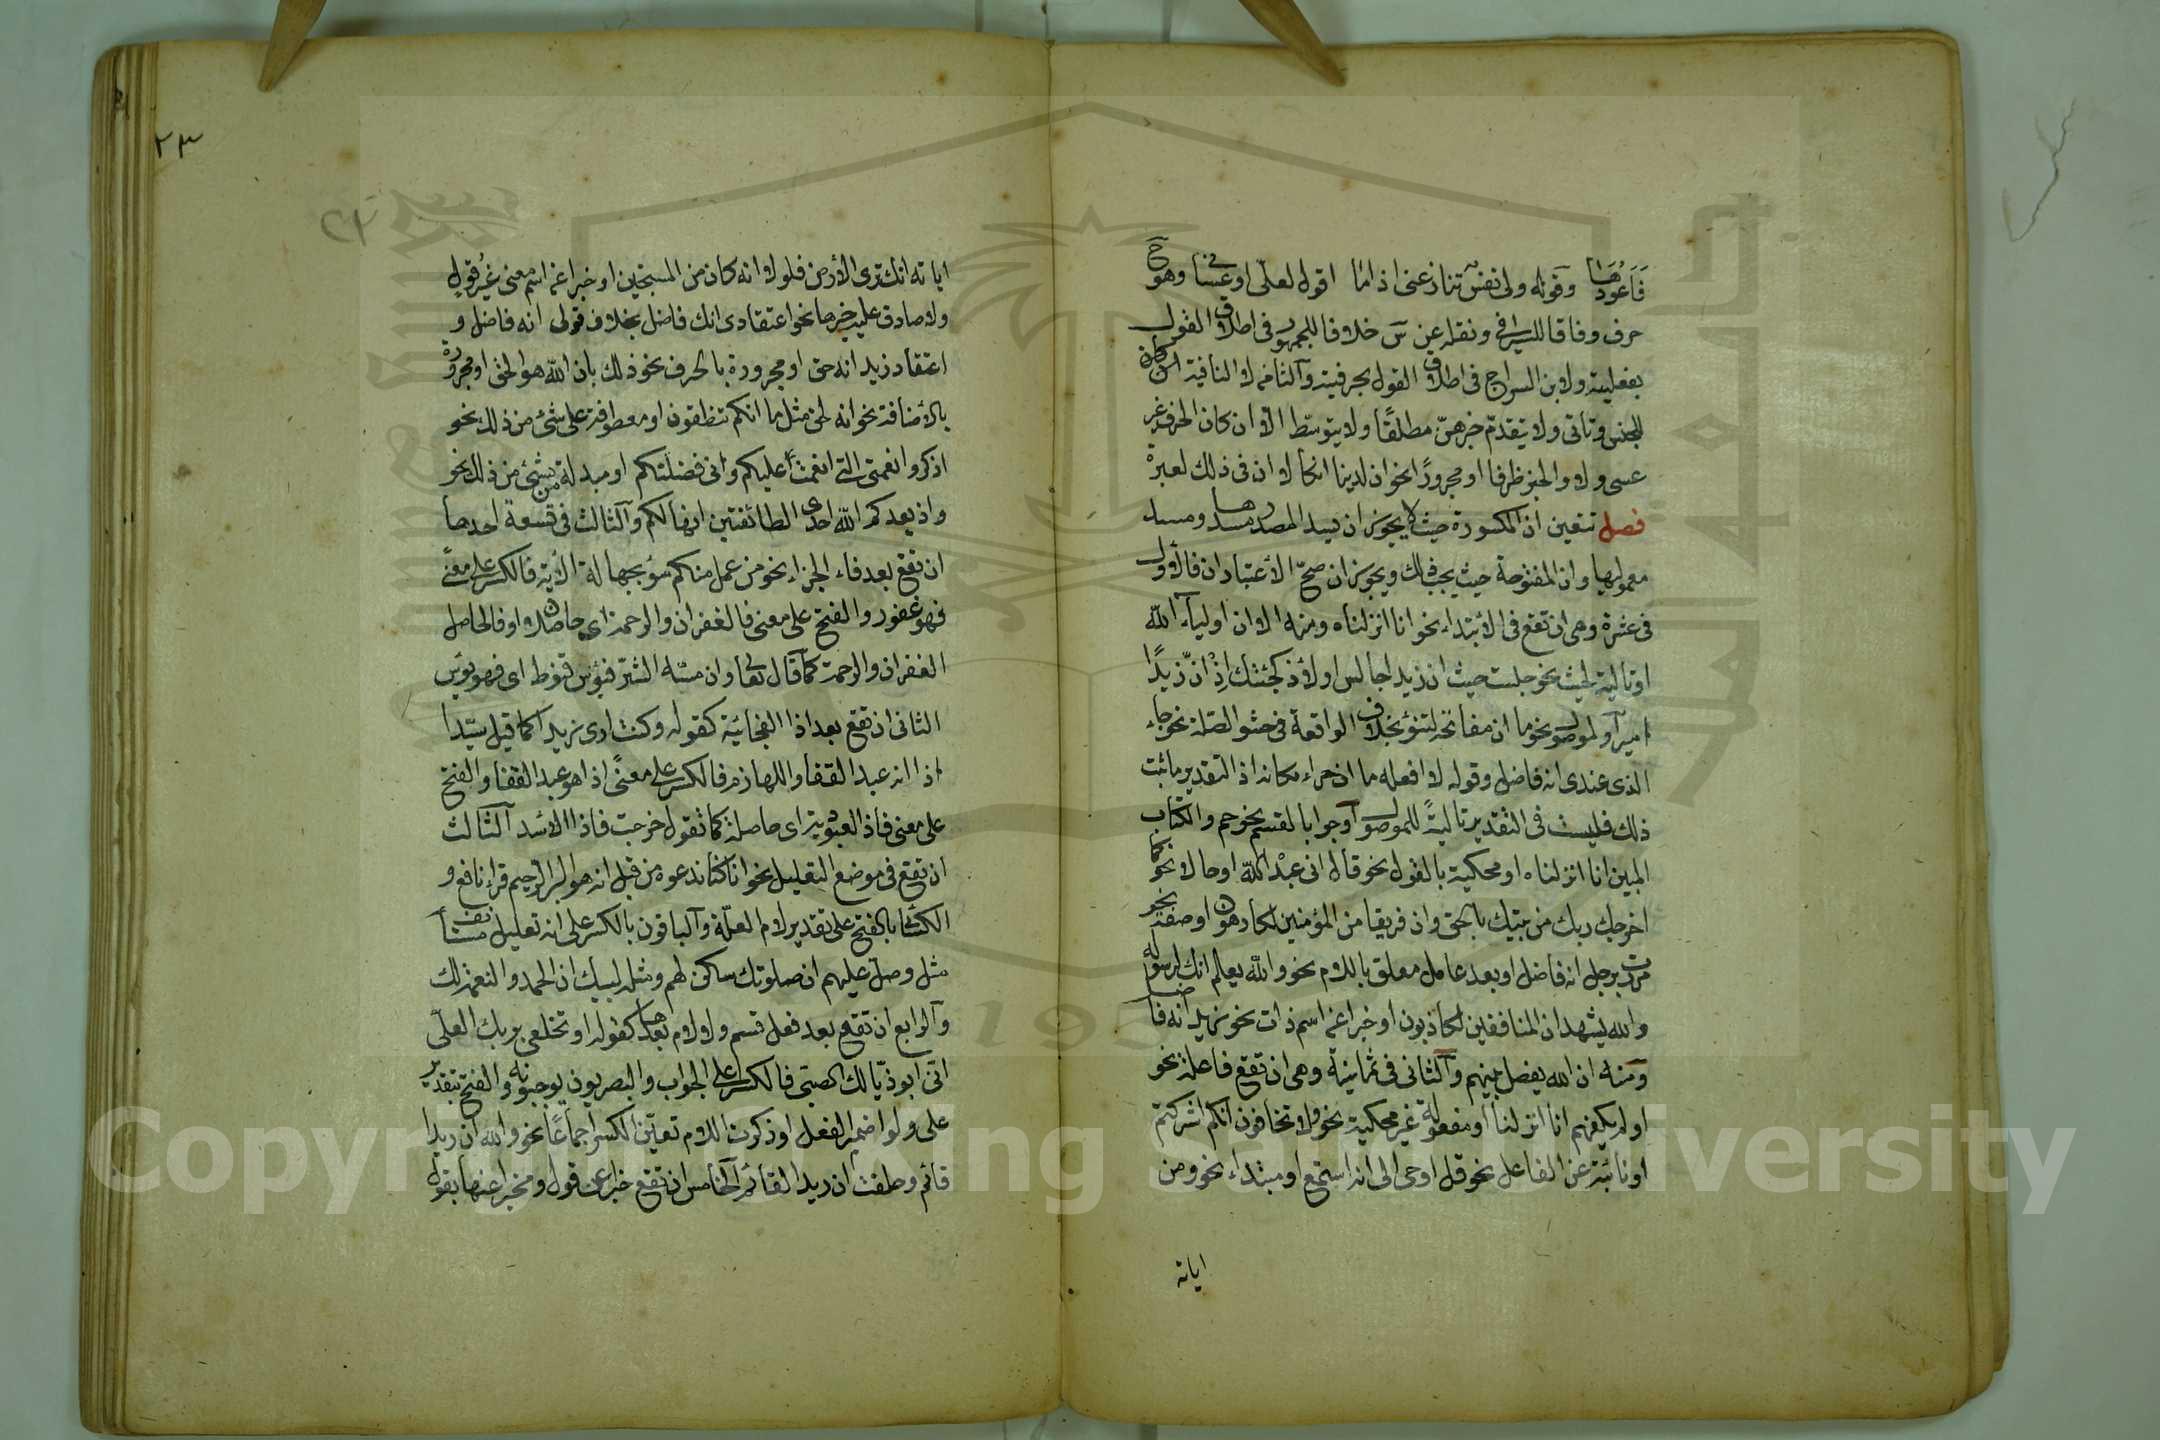 فَاَعُودُهَا وقوله ولى نفس تنازعنى اذا ما اقول لعلّى او عسانى وهو ح
حرف وفاقا للسيرافى ونقله عن س خلافا للجمهور فى اطلاق القول
بفعليته ولابن السراج فى اطلاق القول بحرفيته والثامن لا النافية
للجنس وتاتى ولا يتقدم خبرهنّ مطلقًا ولا يتوسّط الّا ان كان الحرف غير
عسى ولا والخبر ظرفا او مجرورًا نحو ان لدينا انكالا ان فى ذلك لعبرة
فصل تتعين ان المكسورة حيث لا يجوز ان يسد المصدر مسدها ومسد
معموليها وان المفتوحة حيث يجب ذلك ويجوز ان صحّ الأعتباران فالأول
فى عشرة وهى ان تقع فى الأبتداء نحو انا انزلناه ومنه الا ان اولياء الله
او تالية لحيث نحو جلست حيث ان زيدا جالس او لأذ كجئتك اِذْ انّ زيدًا
امير او لموصول نحو ما ان مفاتحه لتنوء بخلاف الواقعة فى حشو الصّلة نحو جاء
الذى عندى انه فاضل وقوله لا افعله ما ان حراء مكانه اذ التقدير ما ثبت
ذلك فليست فى التقدير تاليةً للموصول او جوابا لقسم نحو حم والكتاب
المبين انا انزلناه او محكية بالقول نحو قال انى عبْد الله او حالا نحو كما
اخرجك ربك من بيتك بالحق وان فريقا من المؤمنين لكارهون او صفة نحو
مررت برجل انه فاضل او بعد عامل معلق باللام نحو والله يعلم انك لرسوله
والله يشهد ان المنافقين لكاذبون او خبرا عن اسم ذات نحو زيد انه فاضل
ومنه ان الله يفصل بينهم والثانى فى ثمانية وهى ان تقع فاعلة نحو
اولم يكفهم انا انزلنا او مفعولة غير محكية نحو ولا تخافون انكم اشركتم
او نائبة عن الفاعل نحو قل اوحى الى انه استمع او مبتداء نحو ومن
اياته
٢٣
٢٣
اياته انك ترى الأرض فلولا انه كان من المسبّحين او خبرا عن اسم معنى غيْر قولٍ
ولا صادق عليه خبرها نحو اعتقادى انك فاضل بخلاف قولى انه فاضل و
اعتقاد زيد انه حق او مجرورة بالحرف نحو ذلك بان الله هو الحق او مجرورة
بالأضافة نحو انه لحق مثل ما انكم تنطقون او معطوفة على شئ من ذلك نحو
اذكروا نعمتى التى انعمت عليكم وانى فضلتكم او مبدلة من شئ من ذلك نحو
واذ يعدكم الله احدى الطائفتين انها لكم والثالث فى تسعة احدها
ان تقع بعد فاء الجزاء نحو من عمل منكم سوء بجهالة الأية فالكسر على معنى
فهو غفور والفتح على معنى فالغفران والرحمة اى حاصلان او فالحاصل
الغفران والرحمة كما قال تعالى وان مسّه الشرّ فيؤس قنوط اى فهو يؤس
الثانى ان تقع بعد اذا الفجائية كقوله وكنت ارى زيدا كما قيل سيّدا
اذا انه عبد القفا واللهازم فالكسر على معنى اذا هو عبد القفا والفتح
على معنى فاذا العبوديّة اى حاصلة كما تقول خرجت فاذا الاسد الثالث
ان تقع فى موضع التعليل نحو انا كنا ندعوه من قبل انه هو البر الرّحيم قراء نافع و
الكسائى بالفتح على تقدير لام العلّة والباقون بالكسر على انه تعليل مستأنف
مثل وصلّ عليهم ان صلوتك سكن لهم ومثله لبيك ان الحمد والنعمة لك
والرابع ان تقع بعد فعل قسم ولا لام بعدها كقوله او تحلفى بربك العلىّ
انّى ابو ذيّالك الصبىّ فالكسر على الجواب والبصريون يوجبونه والفتح بتقدير
على ولو اضمر الفعل او ذكرت اللام تعيّن الكسر اجماعًا نحو والله ان زيدا
قائم وحلفت ان زيدا لقائم الخامس ان تقع خبرا عن قول ومخبرا عنها بقول
Copyright © King Saud University